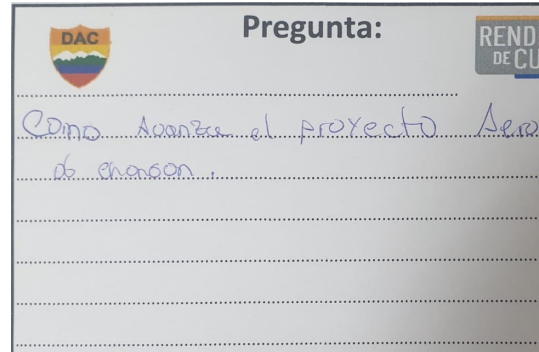 DAC
Pregunta:
REND
DE CU
Como Avanza el proyecto Aero
de chonson.